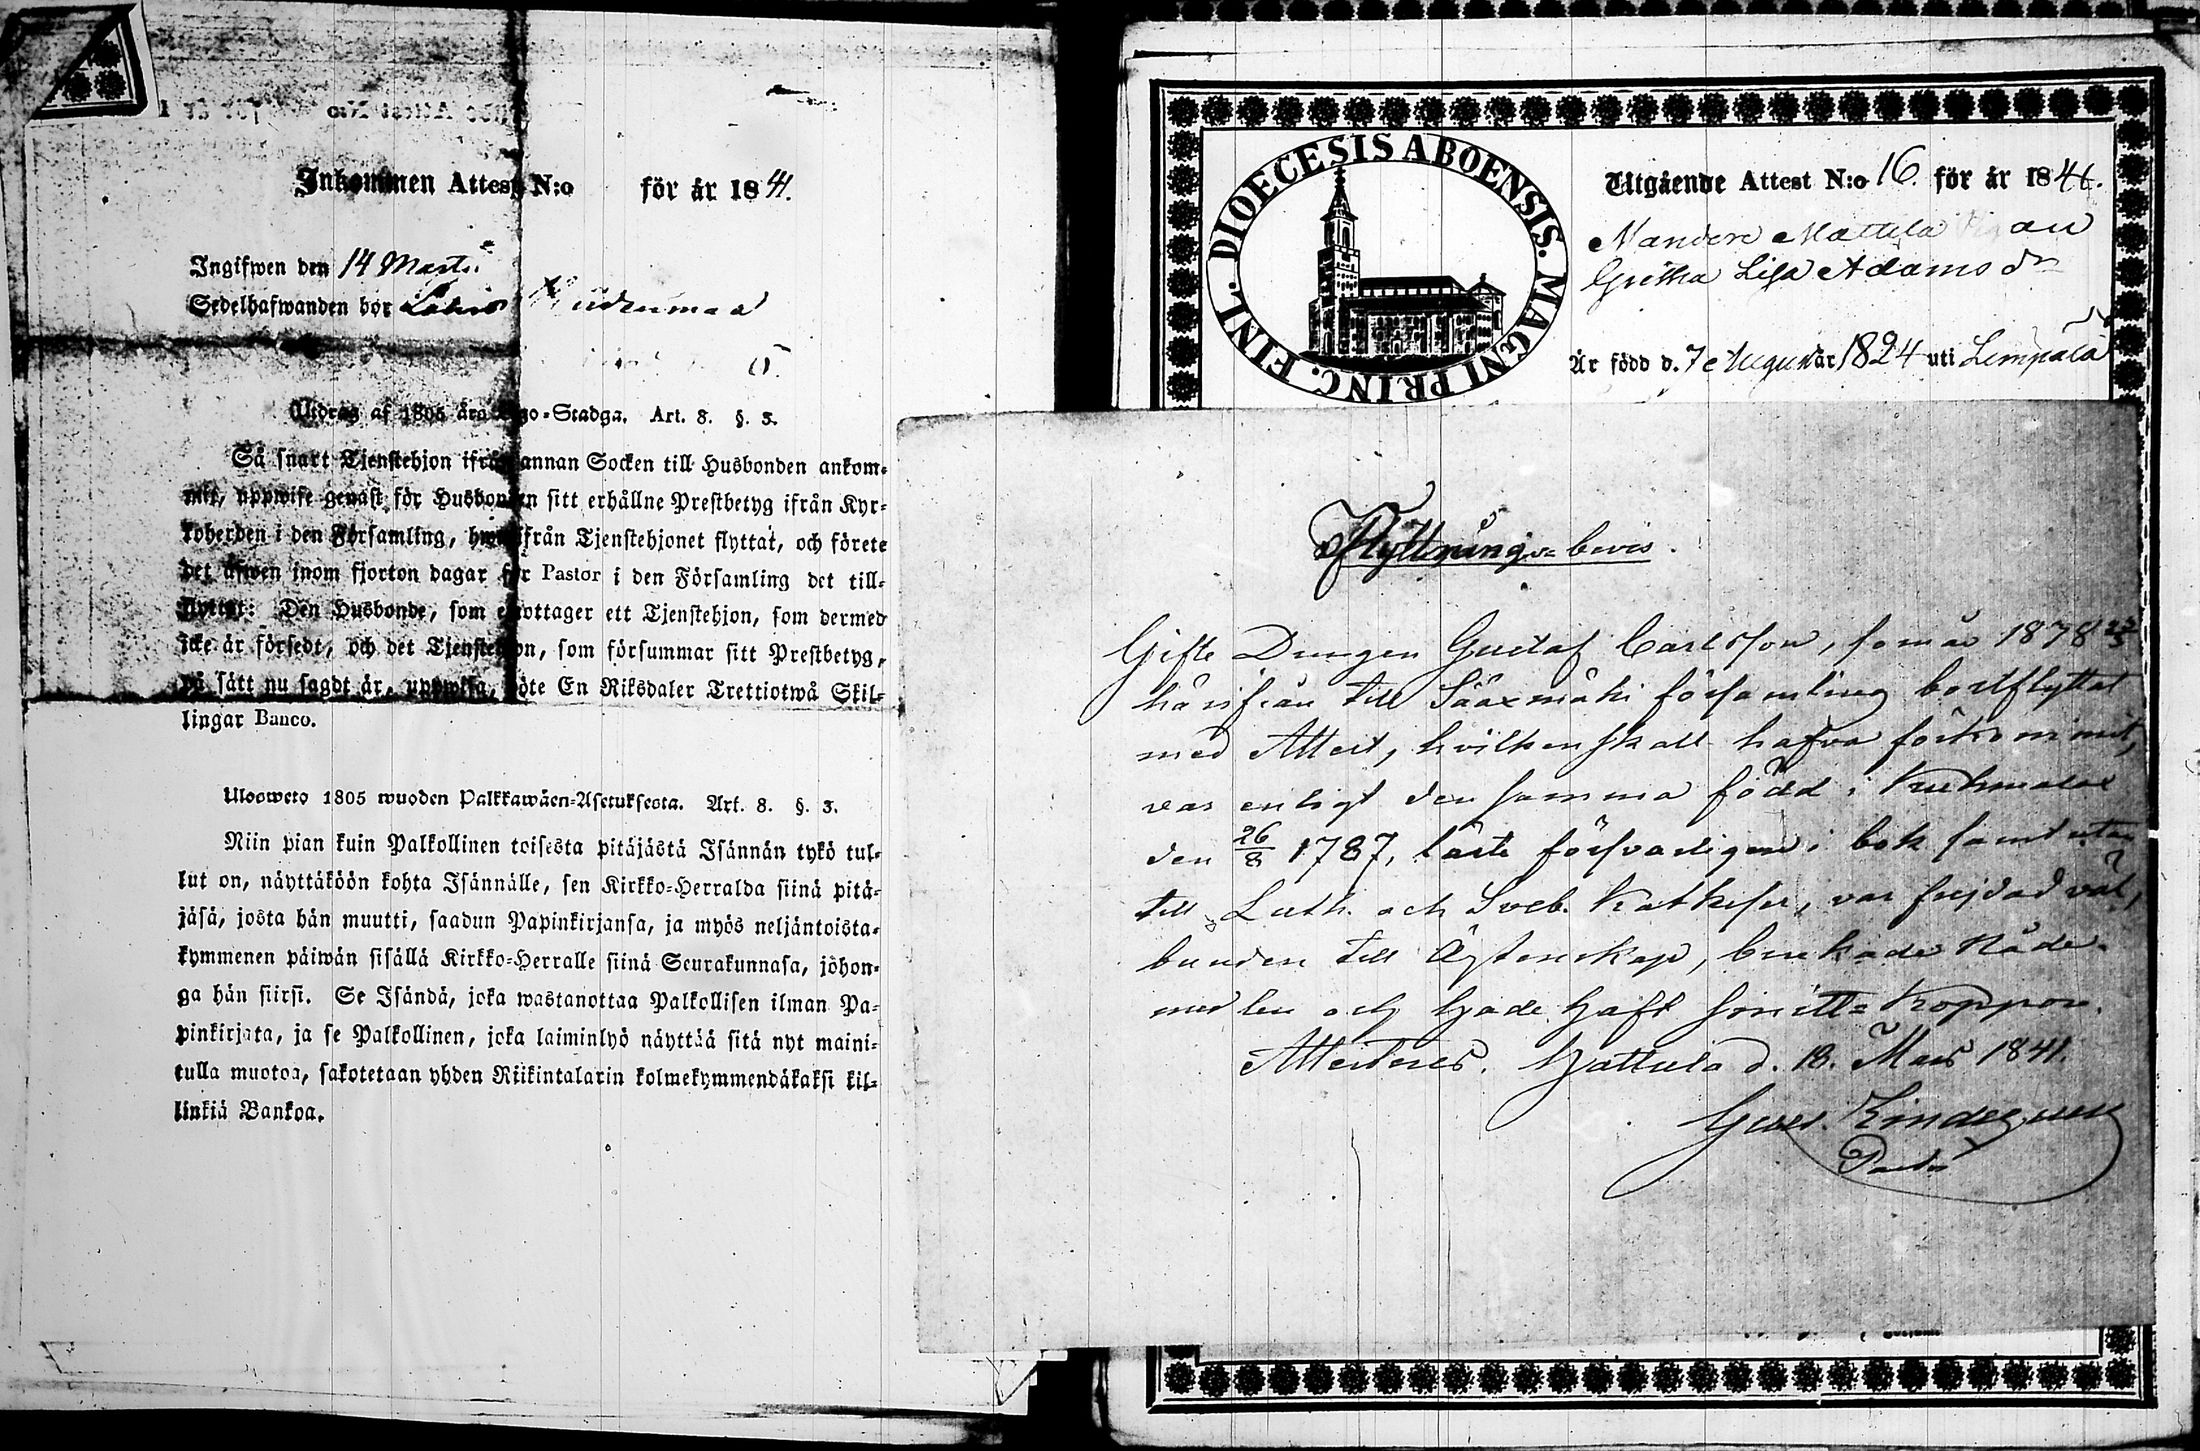 Inkommen Attest N:o för år 1841.
Ingifwen den 14 Martii
Sedelhafwanden bor
Utdrag af 1805 års Lego-Stadga. Art. 8. §. 3.
Så snart Tjenstehjon ifrån annan Socken till Husbonden ankom-
mit, uppwise genast för Husbonden sitt erhållne Prestbetyg ifrån Kyr-
koherden i den Församling, hwarifrån Tjenstehjonet flyttat, och förete
det äfwen inom fjorton dagar för Pastor i den Församling det till-
flyttat: Den Husbonde, som emottager ett Tjenstehjon, som dermed
icke är försedt, och det Tjenstehjon, som försummar sitt Prestbetyg,
på sätt nu sagdt är, uppwisa, böte En Riksdaler Trettiotwå Skil-
lingar Banco.
Ulosweto 1805 wuoden Palkkawäen-Asetuksesta. Art. 8. §. 3.
Niin pian kuin Palkollinen toisesta pitäjästä Isännän tykö tul-
lut on, näyttäköön kohta Isännälle, sen Kirkko-Herralda siinä pitä-
jäsä, josta hän muutti, saadun Papinkirjansa, ja myös neljäntoista-
kymmenen päiwän sisällä Kirkko-Herralle siinä Seurakunnasa, johon-
ga hän siirsi. Se Isändä, joka wastanottaa Palkollisen ilman Pa-
pinkirjata, ja se Palkollinen, joka laiminlyö näyttää sitä nyt maini-
tulla muotoa, sakotetaan yhden Riikintalarin kolmekymmendäkaksi kil-
linkiä Bankoa.
DIOECESIS ABOENSIS. MAGNI PRINC. FINL.
Utgående Attest N:o 16. för år 1841.
Mattila
Gretha Lisa Adamsdr
Är född d. 7 August år 1824 uti Lempälä
Flyttnings-bevis.
Gifte Drengen Gustaf Carlsson, som år 1838 23/3
härifrån till Sääxmäki församling bortflyttat
med Attest, hvilken skall hafva förkommit,
var enligt den samma född i Kuhmalax
den 26/8 1787, läste försvarligen i bok samt utan
till Luth. och Sveb. Katkeser, var frejdad väl,
bunden till Ägtenskap, brukade Nåde-
medlen och hade haft smitt-koppor.
Attesteras. Hattula d. 18. Mars 1841.
Gust. Lindeqvist
Pastor